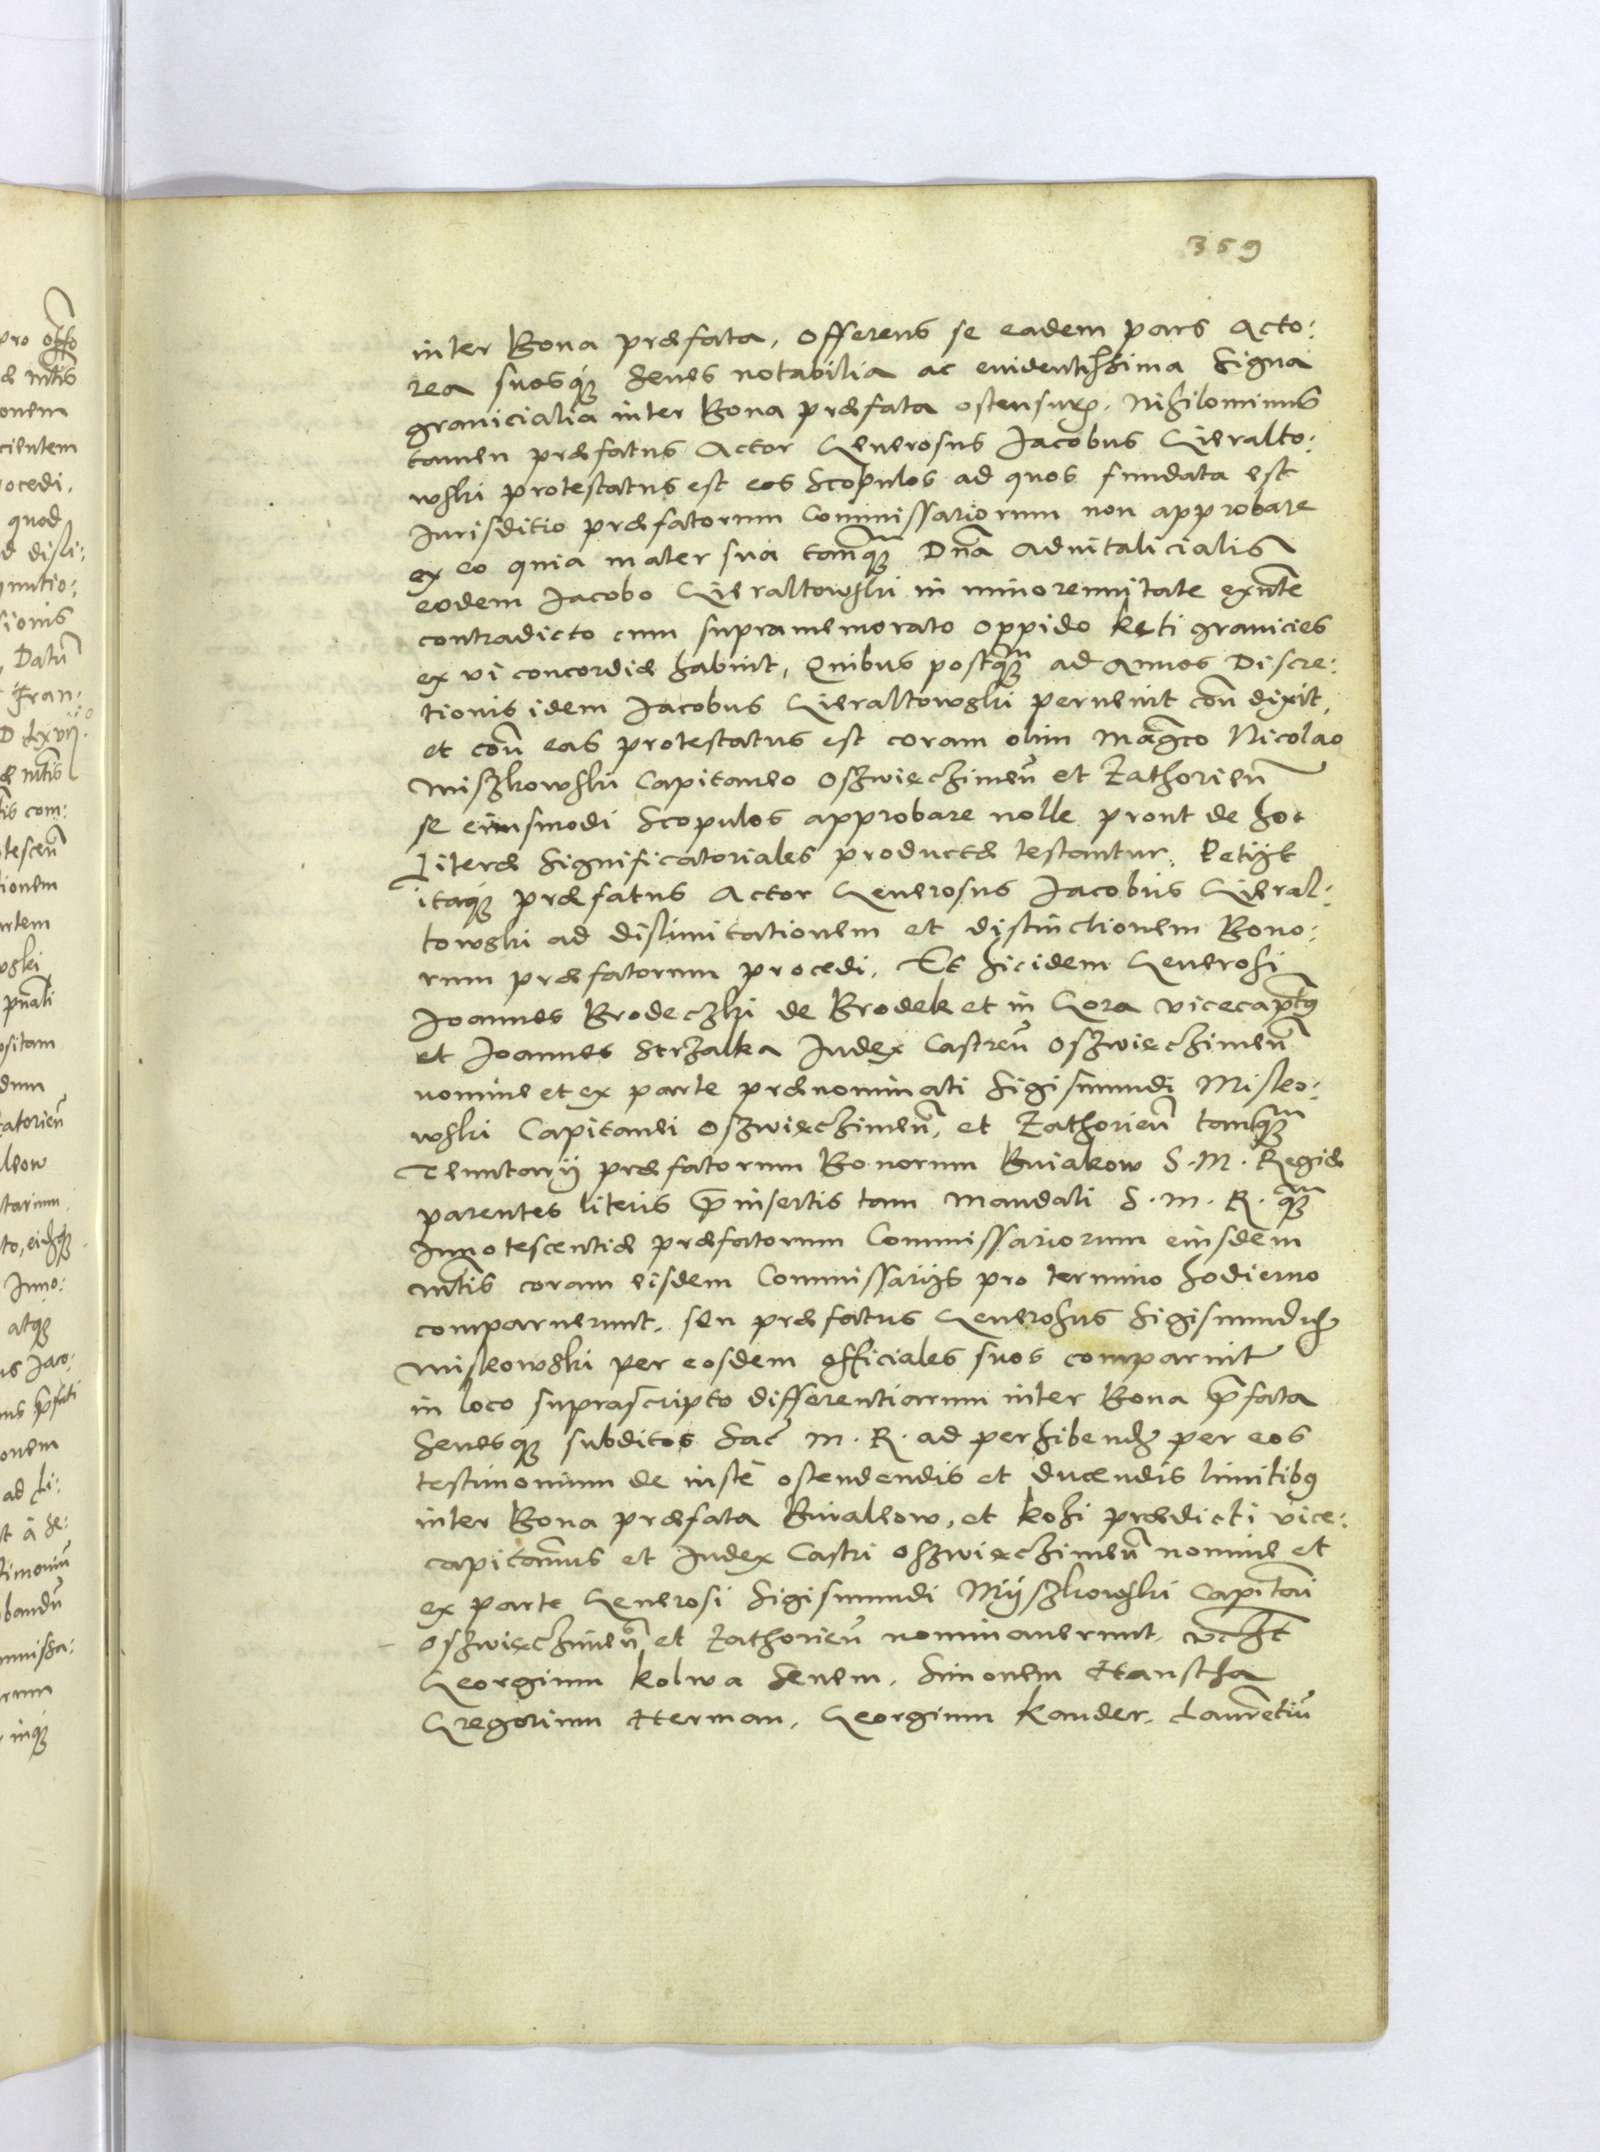 359
inter Bona præfata, offerens se eadem pars Acto:
rea suosq́ue senes notabilia ac euidentissima signa
granicialia inter Bona præfata ostensurꝫ. Nihilominus
tamen præfatus Actor Generosus Jacobus Gieralto:
wski protestatus est eos scopulos ad quos fundata est
Jurisditio præfatorum Commissariorum non approbare
ex eo quia mater sua tamꝗ̃ Dña Aduitalicialis
eodem Jacobo Gieraltowski in minorennitate exñte
contradicto cum supramemorato oppido Kęti granicies
ex vi concordiæ habuit, Quibus postꝗ̃ ad Annos Discre:
tionis idem Jacobus Gieraltowski peruenit coñ dixit,
et coñ eas protestatus est coram olim Magco Nicolao
Miszkowski Capitaneo Oszwięczimeñ et Zathorieñ
se eiusmodi scopulos approbare nolle prout de hoc
Literæ significatoriales productæ testantur. Petijt
itaq́ue præfatus Actor Generosus Jacobus Gieral:
towski ad dislimitationem et distinctionem Bono:
rum præfatorum procedi. Et hicidem Generosi
Joannes Brodeczki de Brodek et in Gora vicecaptꝰ
et Joannes Strzalka Judex Castreñ Oszwięczimeñ
nomine et ex parte prænominati Sigismundi Misko:
wski Capitanei Oszwięczimeñ, et Zathorieñ tamꝗ̃
Tenutarij præfatorum Bonorum Buiakow S. M. Regiæ
parentes literis p̃insertis tam Mandati S. M. R. ꝗ̃
Innotescentiæ præfatorum Commissariorum eiusdem
Mtis coram eisdem Commissarijs pro termino hodierno
comparuerunt. seu præfatus Generosus Sigismundus
Miskowski per eosdem officiales suos comparuit
in loco suprascripto differentiarum inter Bona p̃fata
senesq́ue subditos Sac̃ M. R. ad perhibendꝫ per eos
testimonium de iuste ostendendis et ducendis limitibꝰ
inter Bona præfata Buiakow, et Kozi prædicti vice:
capitaneus et Judex Castri Oszwięczimeñ nomine et
ex parte Generosi Sigismundi Mijszkowski Capitañi
Oszwięczimeñ et Zathorieñ nominauerunt.
Georgium Kolwa senem. Simonem Hanscha
Gregorium Herman. Georgium Kander. Laurẽtiũ